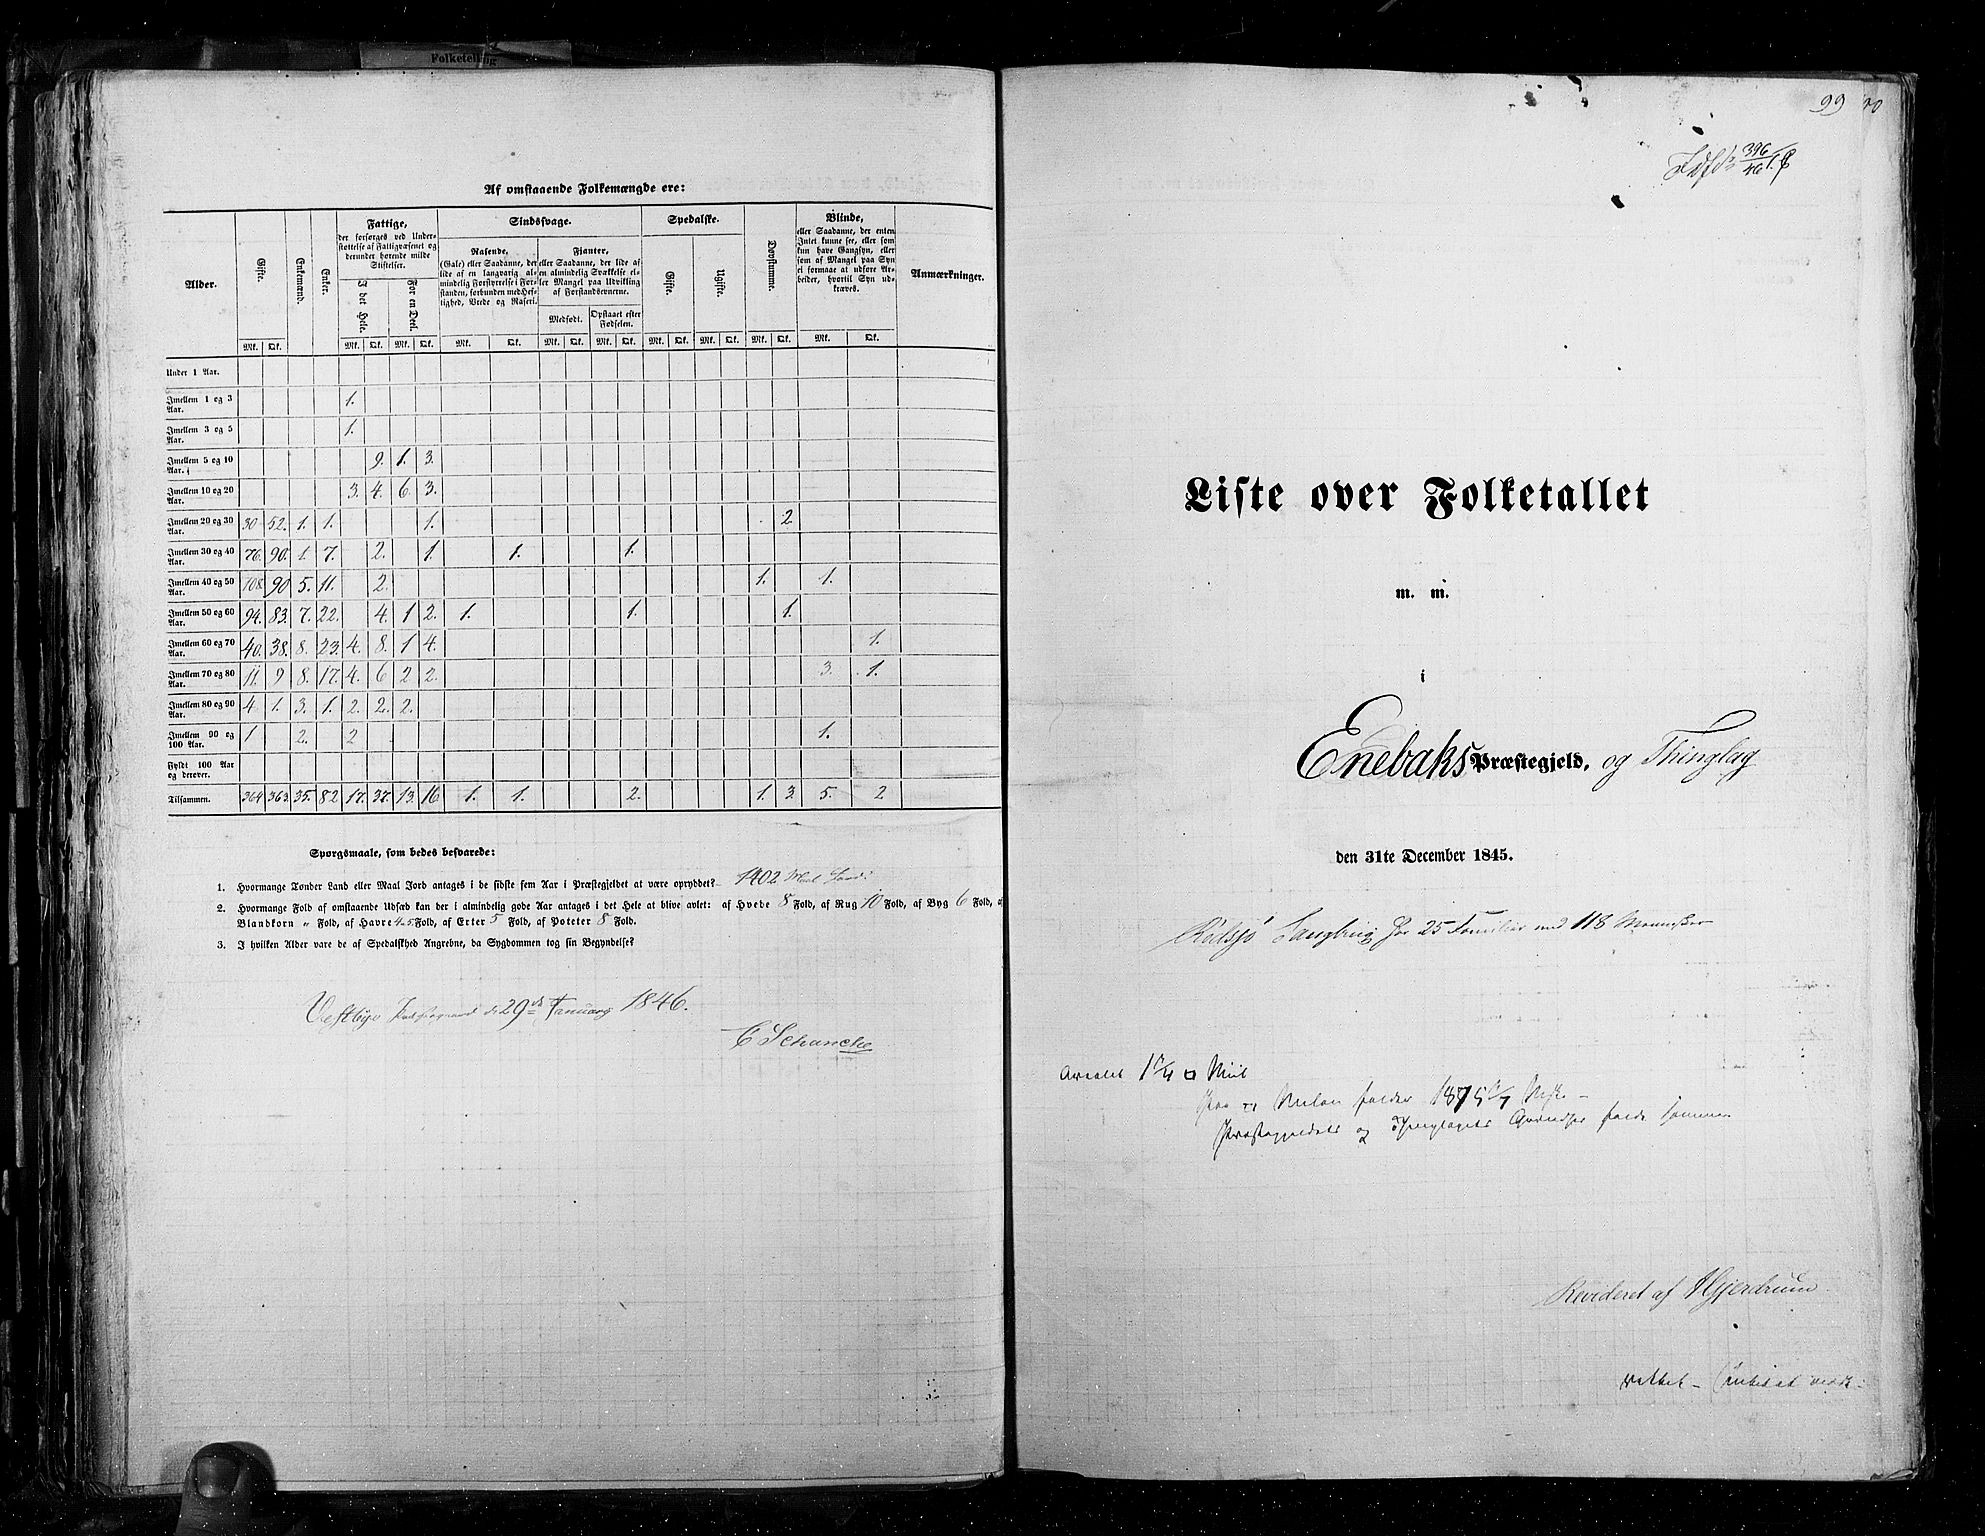 Folketelling
Af omstaaende Folkemængde ere:
Alder. Gifte. Enkemænd. Enker. Fattige, der forsørges ved Understøttelse af Fattigvæsenet og derunder hørende milde Stiftelser. Sindssvage. Spedalske. Døvstumme. Blinde, eller Saadanne, der enten Intet kunne see, eller som kun have Gangsyn, eller som af Mangel paa Syn ei formaae at udføre Arbeider, hvortil Syn udkræves. Anmærkninger.
I det Hele. For en Deel. Rasende, (Gale) eller Saadanne, der lide af en langvarig almindelig Forstyrrelse i Forstanden, forbunden med Heftighed, Vrede og Raseri. Fjanter, eller Saadanne, der lide af en almindelig Svækkelse eller Mangel paa Udvikling af Forstandsevnerne. Gifte. Ugifte.
Medfødt. Opstaaet efter Fødselen.
Mk. Qk. Mk. Qk. Mk. Qk. Mk. Qk. Mk. Qk. Mk. Qk. Mk. Qk. Mk. Qk. Mk. Qk. Mk. Qk.
Under 1 Aar.
Imellem 1 og 3 Aar. 1.
Imellem 3 og 5 Aar. 1.
Imellem 5 og 10 Aar. 9. 1. 3.
Imellem 10 og 20 Aar. 3. 4. 6. 3.
Imellem 20 og 30 Aar. 30 52. 1. 1. 1. 2
Imellem 30 og 40 Aar. 76. 90. 1. 7. 2. 1. 1. 1.
Imellem 40 og 50 Aar. 108. 90 5. 11. 2. 1. 1.
Imellem 50 og 60 Aar. 94. 83. 7. 22. 4. 1 2. 1. 1. 1.
Imellem 60 og 70 Aar. 40. 38. 8. 23. 4. 8. 1 4. 1.
Imellem 70 og 80 Aar. 11. 9 8. 17. 4. 6 2 2. 3. 1.
Imellem 80 og 90 Aar. 4. 1. 3. 1. 2. 2. 2.
Imellem 90 og 100 Aar. 1 2. 2 1.
Fyldt 100 Aar og derover.
Tilsammen. 364 363. 35. 82 17. 37. 13. 16 1. 1. 2. 1. 3. 5. 2
Spørgsmaale, som bedes besvarede:
1. Hvormange Tønder Land eller Maal Jord antages i de sidste fem Aar i Præstegjeldet at være opryddet? 1402 Maal Jord.
2. Hvormange Fold af omstaaende Udsæd kan der i almindelig gode Aar antages i det Hele at blive avlet: af Hvede 8 Fold, af Rug 10 Fold, af Byg 6 Fold, af
Blandkorn „ Fold, af Havre 4-5 Fold, af Erter 5 Fold, af Poteter 8 Fold.
3. I hvilken Alder vare de af Spedalskhed Angrebne, da Sygdommen tog sin Begyndelse?
Vestbye Præstegaard d. 29de Januar 1846.
C Schancke
99
396
46
Liste over Folketallet
m. m.
i
Enebaks Præstegjeld, og Thinglag
den 31te December 1845.
Langbrug har 25 Familier med 118 Mennesker
Arealet 1 1/4 □ Miil
Paa □ Milen falder 1875
Præstegjeldets og Thinglagets Grændser falde sammen
Revideret af Hjerdrum
rettet